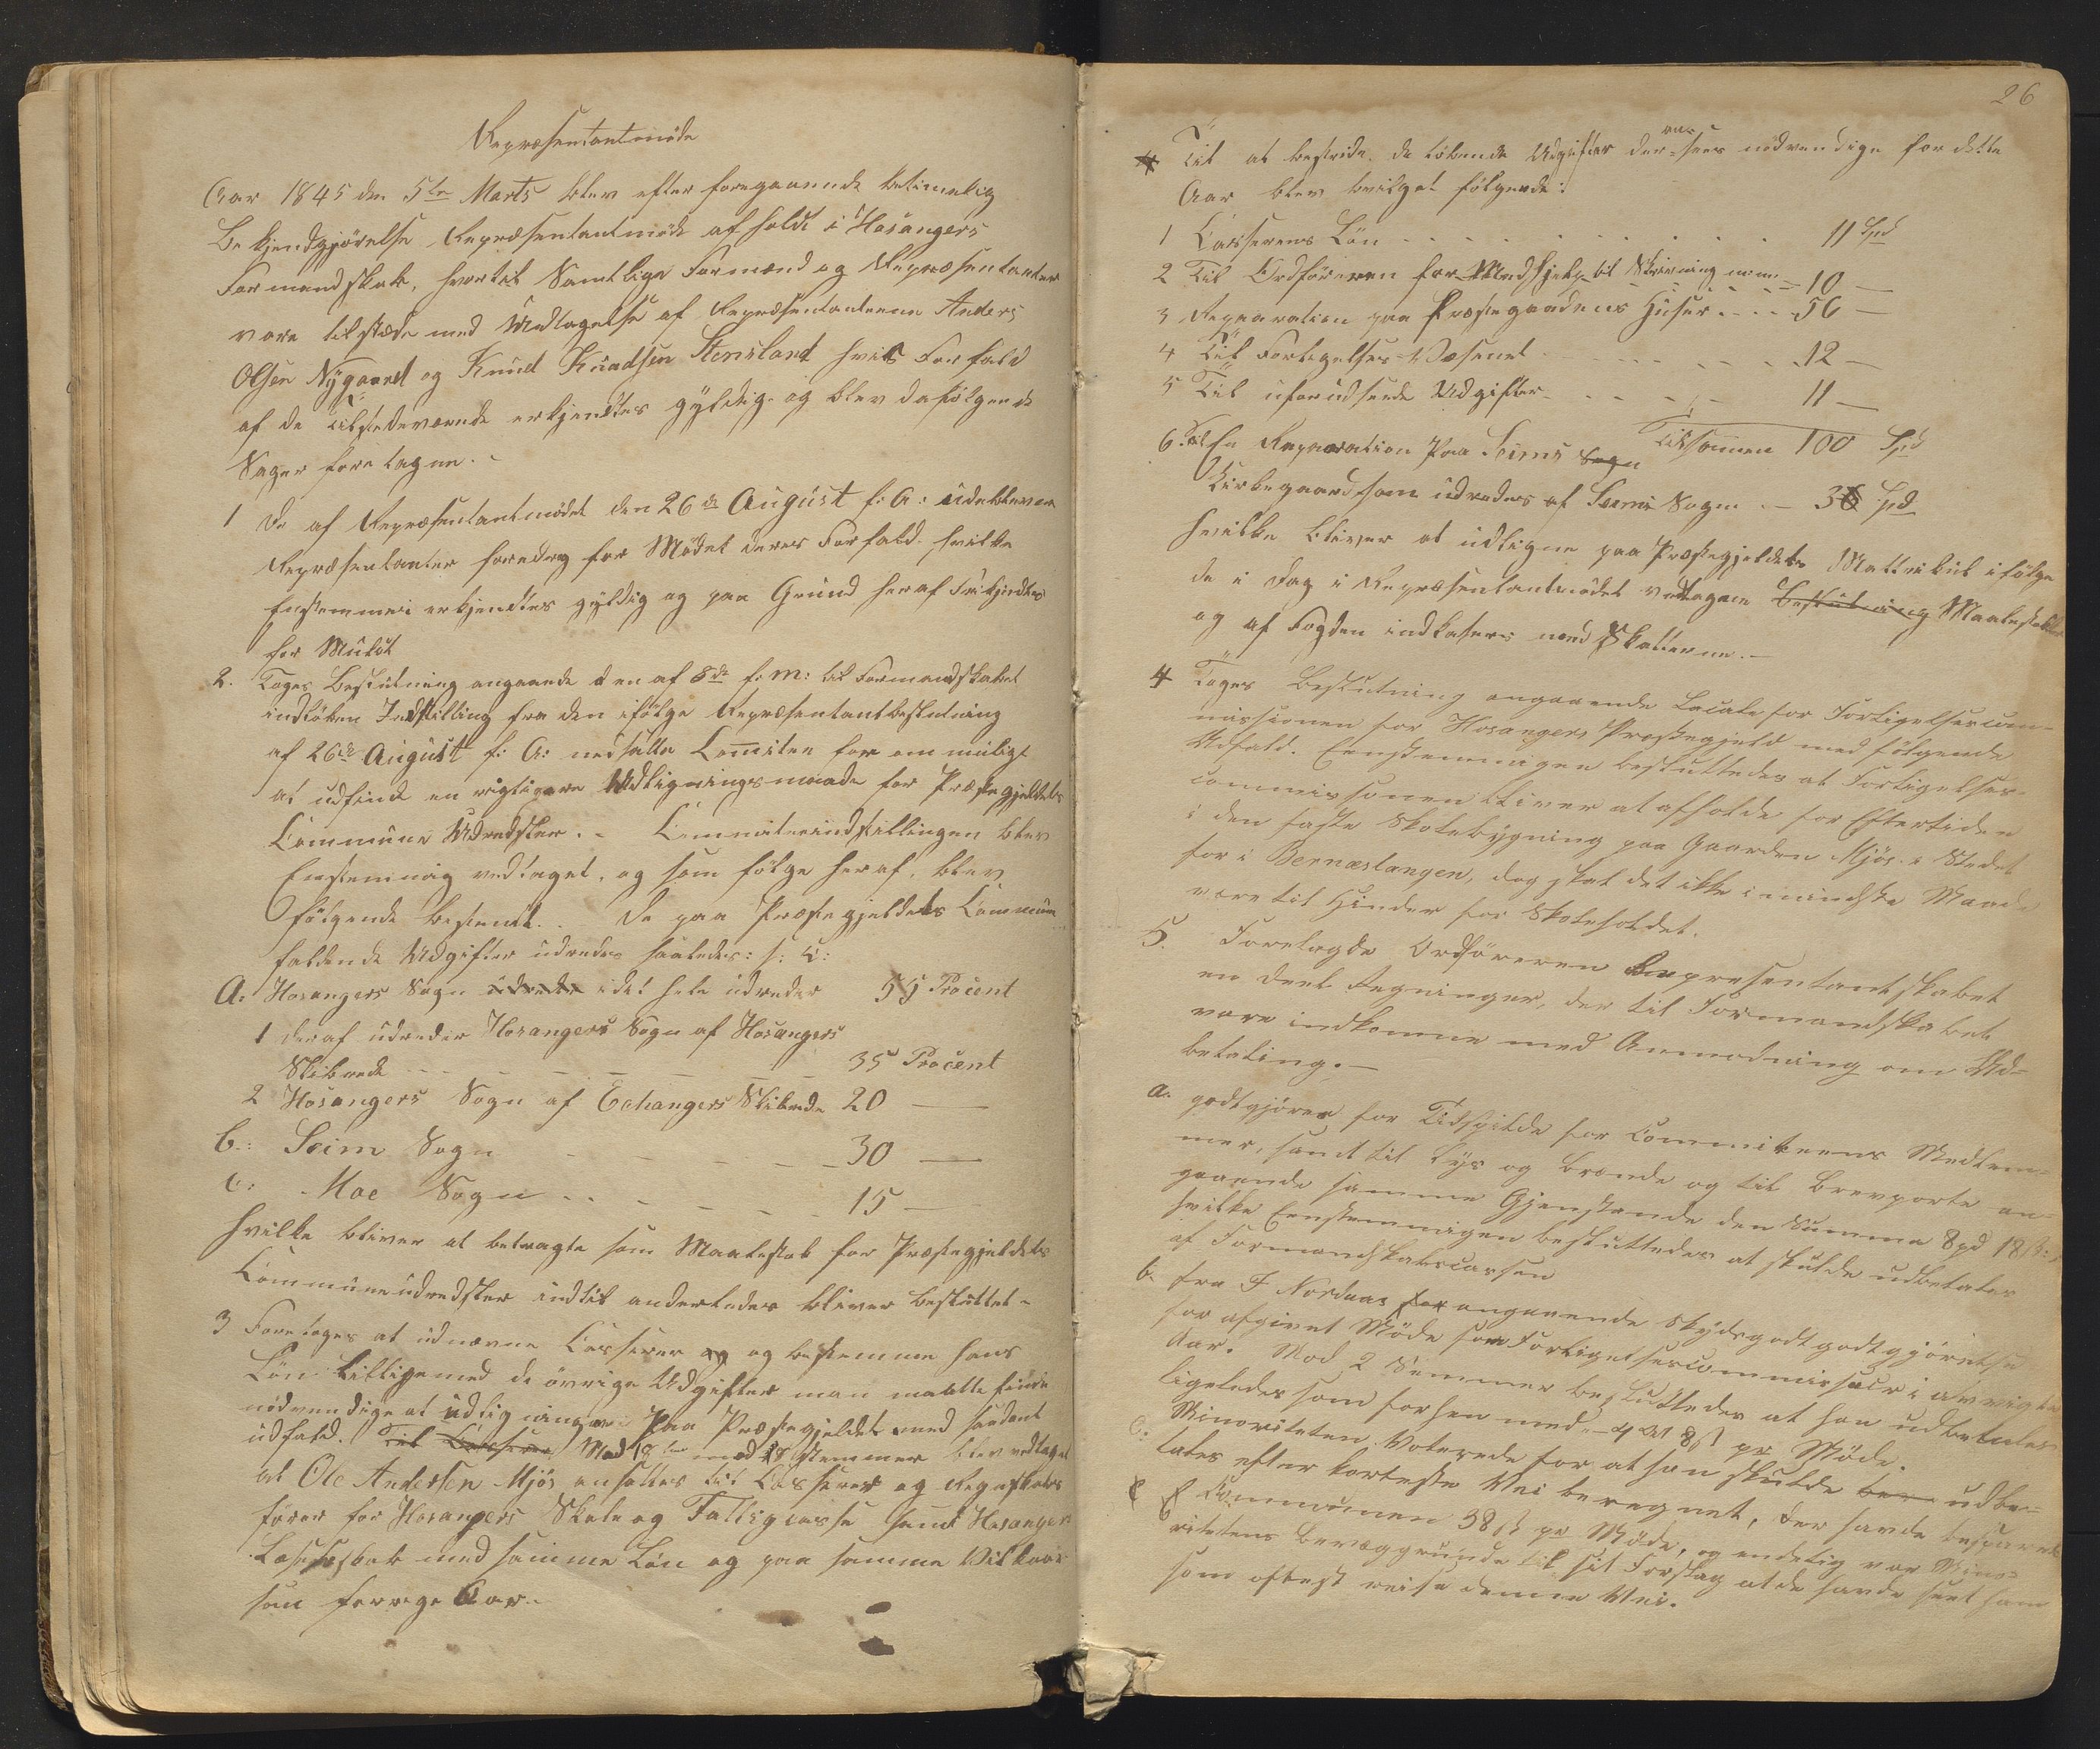 Repræsentantmöde
Aar 1845 den 5te Marts blev efter foregaaende betimelig
Bekjendtgjörelse Repræsentantmöde afholdt i Hosangers
Formandskab, hvortil Samtlige Formænd og Repræsentanter
vare tilstæde med Undtagelse af Repræsentanterne Anders
Olsen Nÿgaard og Knud Knudsen Stensland hvis Forfald
af de tilstedeværende erkjendtes gÿldig og blev da fölgende
Sager foretagne.-
1 De af Repræsentantmödet den 26de August f: A: udeblevne
Repræsentanter foredrog for Mödet deres Forfald hvilke
Eenstemmi erkjendtes gÿldig og paa Grund heraf frikjendtes
for Mulct
2. Toges Beslutning angaaende den af 8de f: M: til Formandskabet
indlöbne Indstilling fra den ifölge Repræsentantbeslutning
af 26de August f: A: nedsatte Comitee for om muligt
at udfinde en rigtigere Udligningsmaade for Præstegjeldets
Commune Udredsler.- Committeeindstillingen blev
Eenstemmig vedtaget, og som fölge heraf, blev
fölgende bestemt. De paa Præstegjeldets Commun
faldende Udgifter udredes saaledes: s: v:
A: Hosangers Sogn udreder idet hele udreder 55 Procent
1 deraf udreder Hosangers Sogn af Hosangers
Skibrede - - - - - - 35 Procent
2 Hosangers Sogn af Echangers Skibrede 20 —
b: Seim Sogn - - - - - 30 —
c: Moe Sogn - - - - - 15 —
hvilke bliver at betragte som Maalestok for Præstegjeldets
Communeudredsler indtil anderledes bliver besluttet-
3 Foretoges at udnævne Casserer og og bestemme hans
Lön tilligemed de övrige Udgifter man maatte finde
nödvendige at udligninger paa Præstegjeldet med saadant
udfald. Til Casserer Med 18 stemmer blev vedtaget
at Ole Andersen Mjös ansattes til Casserer og Regnskabs
förer for Hosangers Skole og Fattigcasse samt Hosanger
Læseselskab med samme Lön og paa samme Vilkaar
som forrige Aar.-
26
4 Til at bestride de löbende Udgifter der ansees nödvendige for dette
Aar blev bevilget fölgende:
1 Casserens Lön - - - - - - 11 Spd
2 Til Ordföreren for Medhjelp til Skrivning m:m: - 10 —
3 Reparation paa Præstegaardens Huser - - - 56 —
4 Til Forligelses-Væsenet - - - - - 12 —
5 Til uforudseede Udgifter - - - - - 11 —
Tilsammen 100 Spd
6. Til En Reparation Paa Seims Sogn
Kirkegaard som udredes af Seims Sogn - 36 Spd
hvilke bliver at udligne paa Præstegjeldets Mattrikul ifölge
de i Dag i Repræsentantmödet vedtagne Beslutning Maalestokke
og af Fogden indkaseres med Skatterne.-
4 Toges Beslutning angaaende Locale for Forligelsescom-
missionen for Hosangers Præstegjeld med fölgende
Udfald. Eenstemmigen besluttedes at Forligelses-
commissionen bliver at afholde for Eftertiden
i den faste Skolebÿgning paa Gaarden Mjös i Stedet
for i Bernæslangen, dog skal det ikke i mindste Maade
være til Hinder for Skoleholdet.
5. Forelagde Ordföreren Repræsentantskabet
en deel Regninger, der til Formandskabet
vare indkomne med Anmodning om Ud-
betaling.-
a. godtgjörer for Tidspilde for Committeens Medlem-
mer, samt til Lÿs og Brænde og til Brevporto an-
gaaende samme Gjenstande den Summa 8 spd 18 ß:
hvilke Eenstemmigen besluttedes at skulde udbetales
af Formandskabscassen
b. fra F Nordaas for angaaende Skÿdsgodtgodtgjörelse
for afgivet Möde som Forligelsescommissær i afvigte
Aar. Mod 2 Stemmer besluttedes at han udbetales
ligeledes som forhen med - 4 ort 8 ß pr Möde.
Minoriteten Voterede for at han skulde be udbe-
tales efter korteste Vei beregnet, der havde besparet
Communen 38 ß pr Möde, og endelig var Mino-
ritetens bevæggrunde til sit Forslag at de havde seet ham
som oftest reise denne Vei.